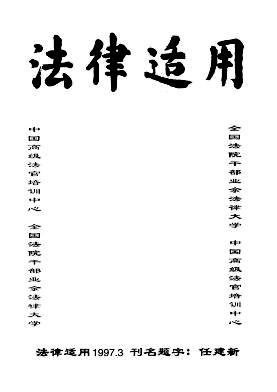 法律适用
中国高级法官培训中心 全国法院干部业余法律大学
全国法院干部业余法律大学 中国高级法官培训中心
法律适用1997.3 刊名题字：任建新